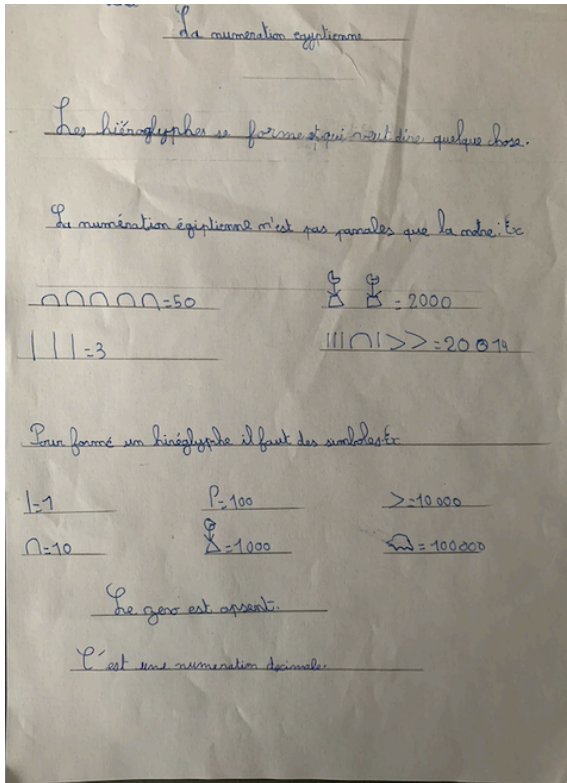 La numeration egyptienne
Les hiéroglyphes se forme et qui veut dire quelque chose.
La numération égiptienne n'est pas parailes que la notre: Ex
∩∩∩∩∩=50 = 2000
| | | =3 |||∩|>>=20014
Pour formé un hiréglyphe il faut des simboles Ex
|=1 P=100 >=10000
∩=10 =1000 =100000
Le zero est apsent.
C'est une numeration decimale.